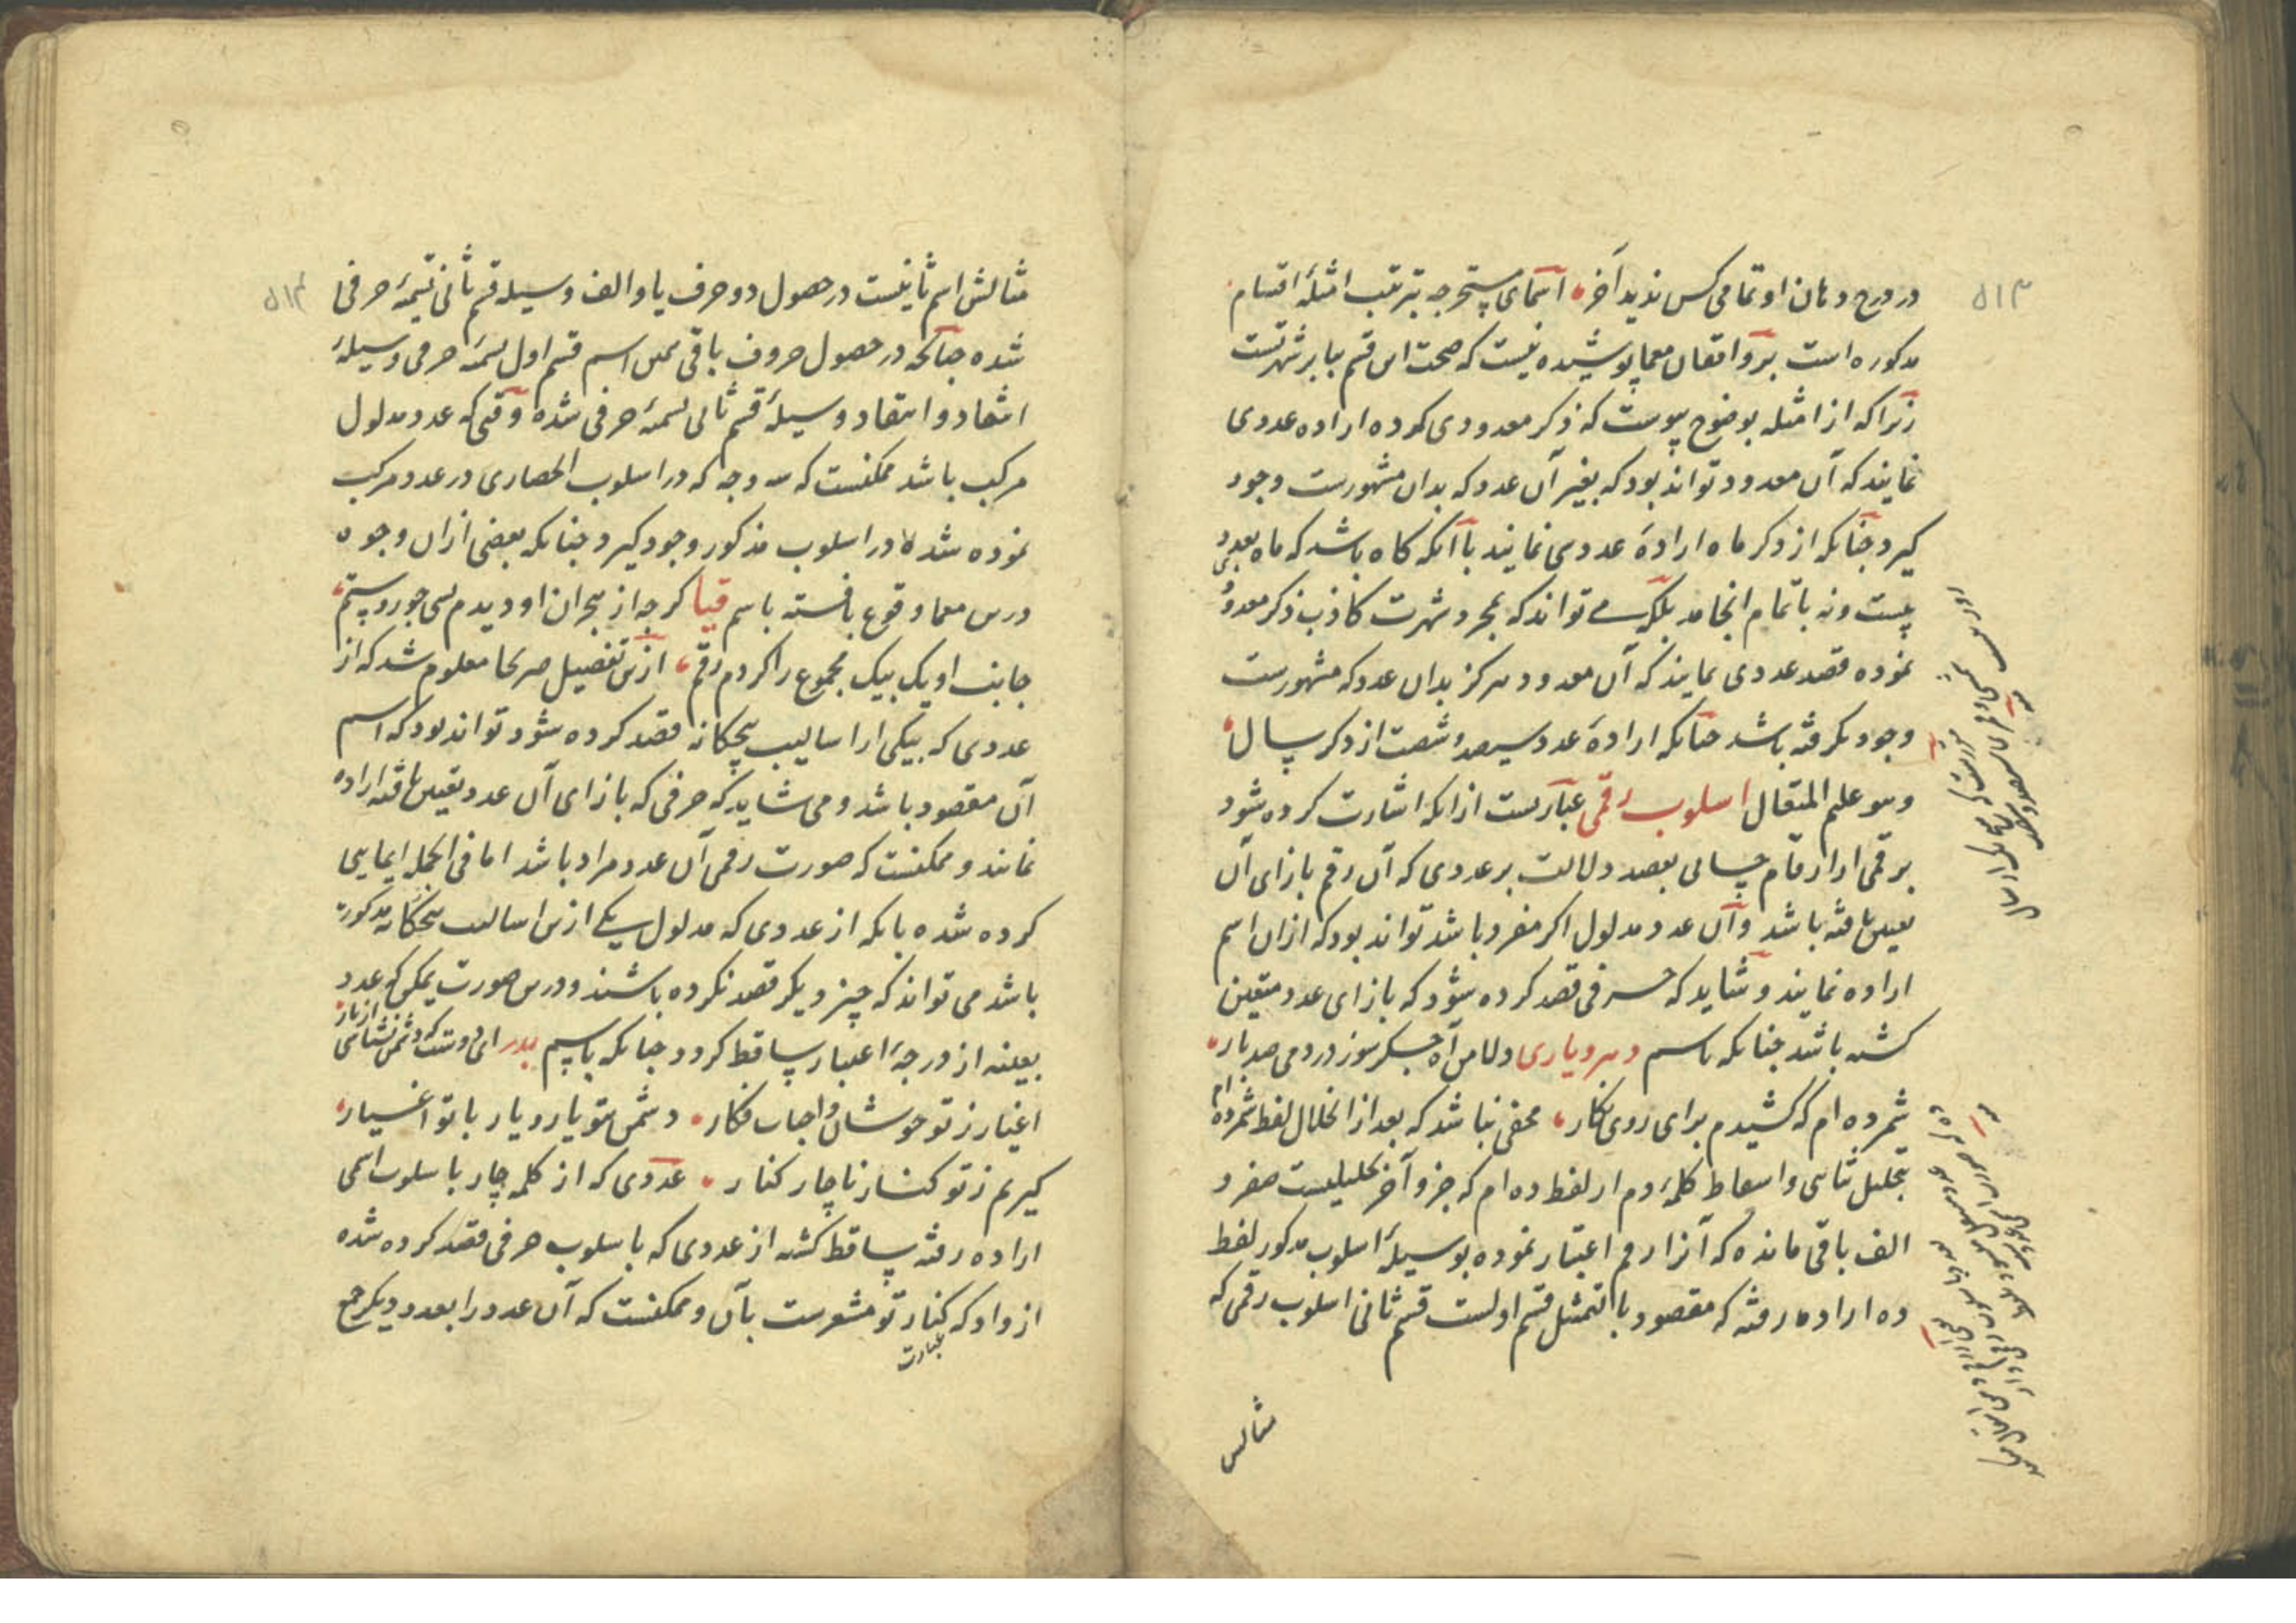 ۵۱۳
در درج دهان او تمامی کس ندید آخر اسمای مستخرجه بترتیب امثلهٔ اقسام
مذکوره است بر واقفان معما پوشیده نیست که صحت این قسم بنا بر شهرتست
زیرا که از امثله بوضوح پیوست که ذکر معدودی کرده اراده عددی
نمایند که آن معدود تواند بود که بغیر آن عدد که بدان مشهورست وجود
گیرد چنانکه از ذکر ماه ارادهٔ عددی نمایند با آنکه گاه باشد که ماه بعدد
بیست و نه باتمام انجامد بلکه می تواند که بمجرد شهرت کاذب ذکر معدود
نموده قصد عددی نمایند که آن معدود هرگز بدان عدد که مشهورست
وجود نگرفته باشد چنانکه ارادهٔ عدد سیصد و شصت از ذکر سال
وهو علم المتعال اسلوب رقمی عبارتست از انکه اشارت کرده شود
برقمی از ارقام حسابی بقصد دلالت بر عددی که آن رقم بازای آن
تعیین یافته باشد و آن عدد مدلول اگر مفرد باشد تواند بود که ازان اسم
اراده نمایند و شاید که حرفی قصد کرده شود که بازای عدد متعین
گشته باشد چنانکه باسم دهرویاری دلا من آه جگرسوز دردمی صد بار
شمرده ام که کشیدم برای روی نگار مخفی نباشد که بعد از انحلال لفظ شمرده ام
بتحلیل ثنائی و اسقاط کلمهٔ دم از لفظ ده ام که جزو آخر تحلیلیست صفر و
الف باقی مانده که آنرا رقم اعتبار نموده بوسیلهٔ اسلوب مذکور لفظ
ده اراده رفته که مقصود بالتمثل قسم اولست قسم ثانی اسلوب رقمی که
مثالش
۵۱۴
مثالش اسم ثانیست در حصول دو حرف یا و الف وسیله قسم ثانی تسمیهٔ حرفی
شده چنانکه در حصول حروف باقی همین اسم قسم اول تسمیهٔ حرفی وسیلهٔ
انتقاد و انتقاد وسیلهٔ قسم ثانی تسمیهٔ حرفی شده وقتی که عدد مدلول
مرکب باشد ممکنست که سه وجه که در اسلوب انحصاری در عدد مرکب
نموده شد در اسلوب مذکور وجود گیرد چنانکه بعضی ازان وجوه
درین معما وقوع یافته باسم قیا گرچه از هجران او دیدم بسی جور و ستم
جانب او یک بیک مجموع را کردم رقم ازین تفصیل صریحا معلوم شد که از
عددی که بیکی از اسالیب پنجگانه قصد کرده شود تواند بود که اسم
آن مقصود باشد و می شاید که حرفی که بازای آن عدد تعیین یافته اراده
نمایند و ممکنست که صورت رقمی آن عدد مراد باشد اما فی الجمله ایمایی
کرده شده بانکه از عددی که مدلول یکی ازین اسالیب پنجگانه مذکوره
باشد می تواند که چیز دیگر قصد نکرده باشند و درین صورت یمکن که عدد
بعینه از درجهٔ اعتبار ساقط گردد چنانکه باسم بدر ای دوست که دشمن نشناسی از یار
اغیار ز تو خوشدل و احباب فکار دشمن بتو یار و یار با تو اغیار
گیریم ز تو کنار ناچار کنار عددی که از کلمه چار باسلوب اسمی
اراده رفته ساقط گشته از عددی که باسلوب حرفی قصد کرده شده
از واو که کنار تو مشعرست بآن و ممکنست که آن عدد را بعدد دیگر جمع
عبارت